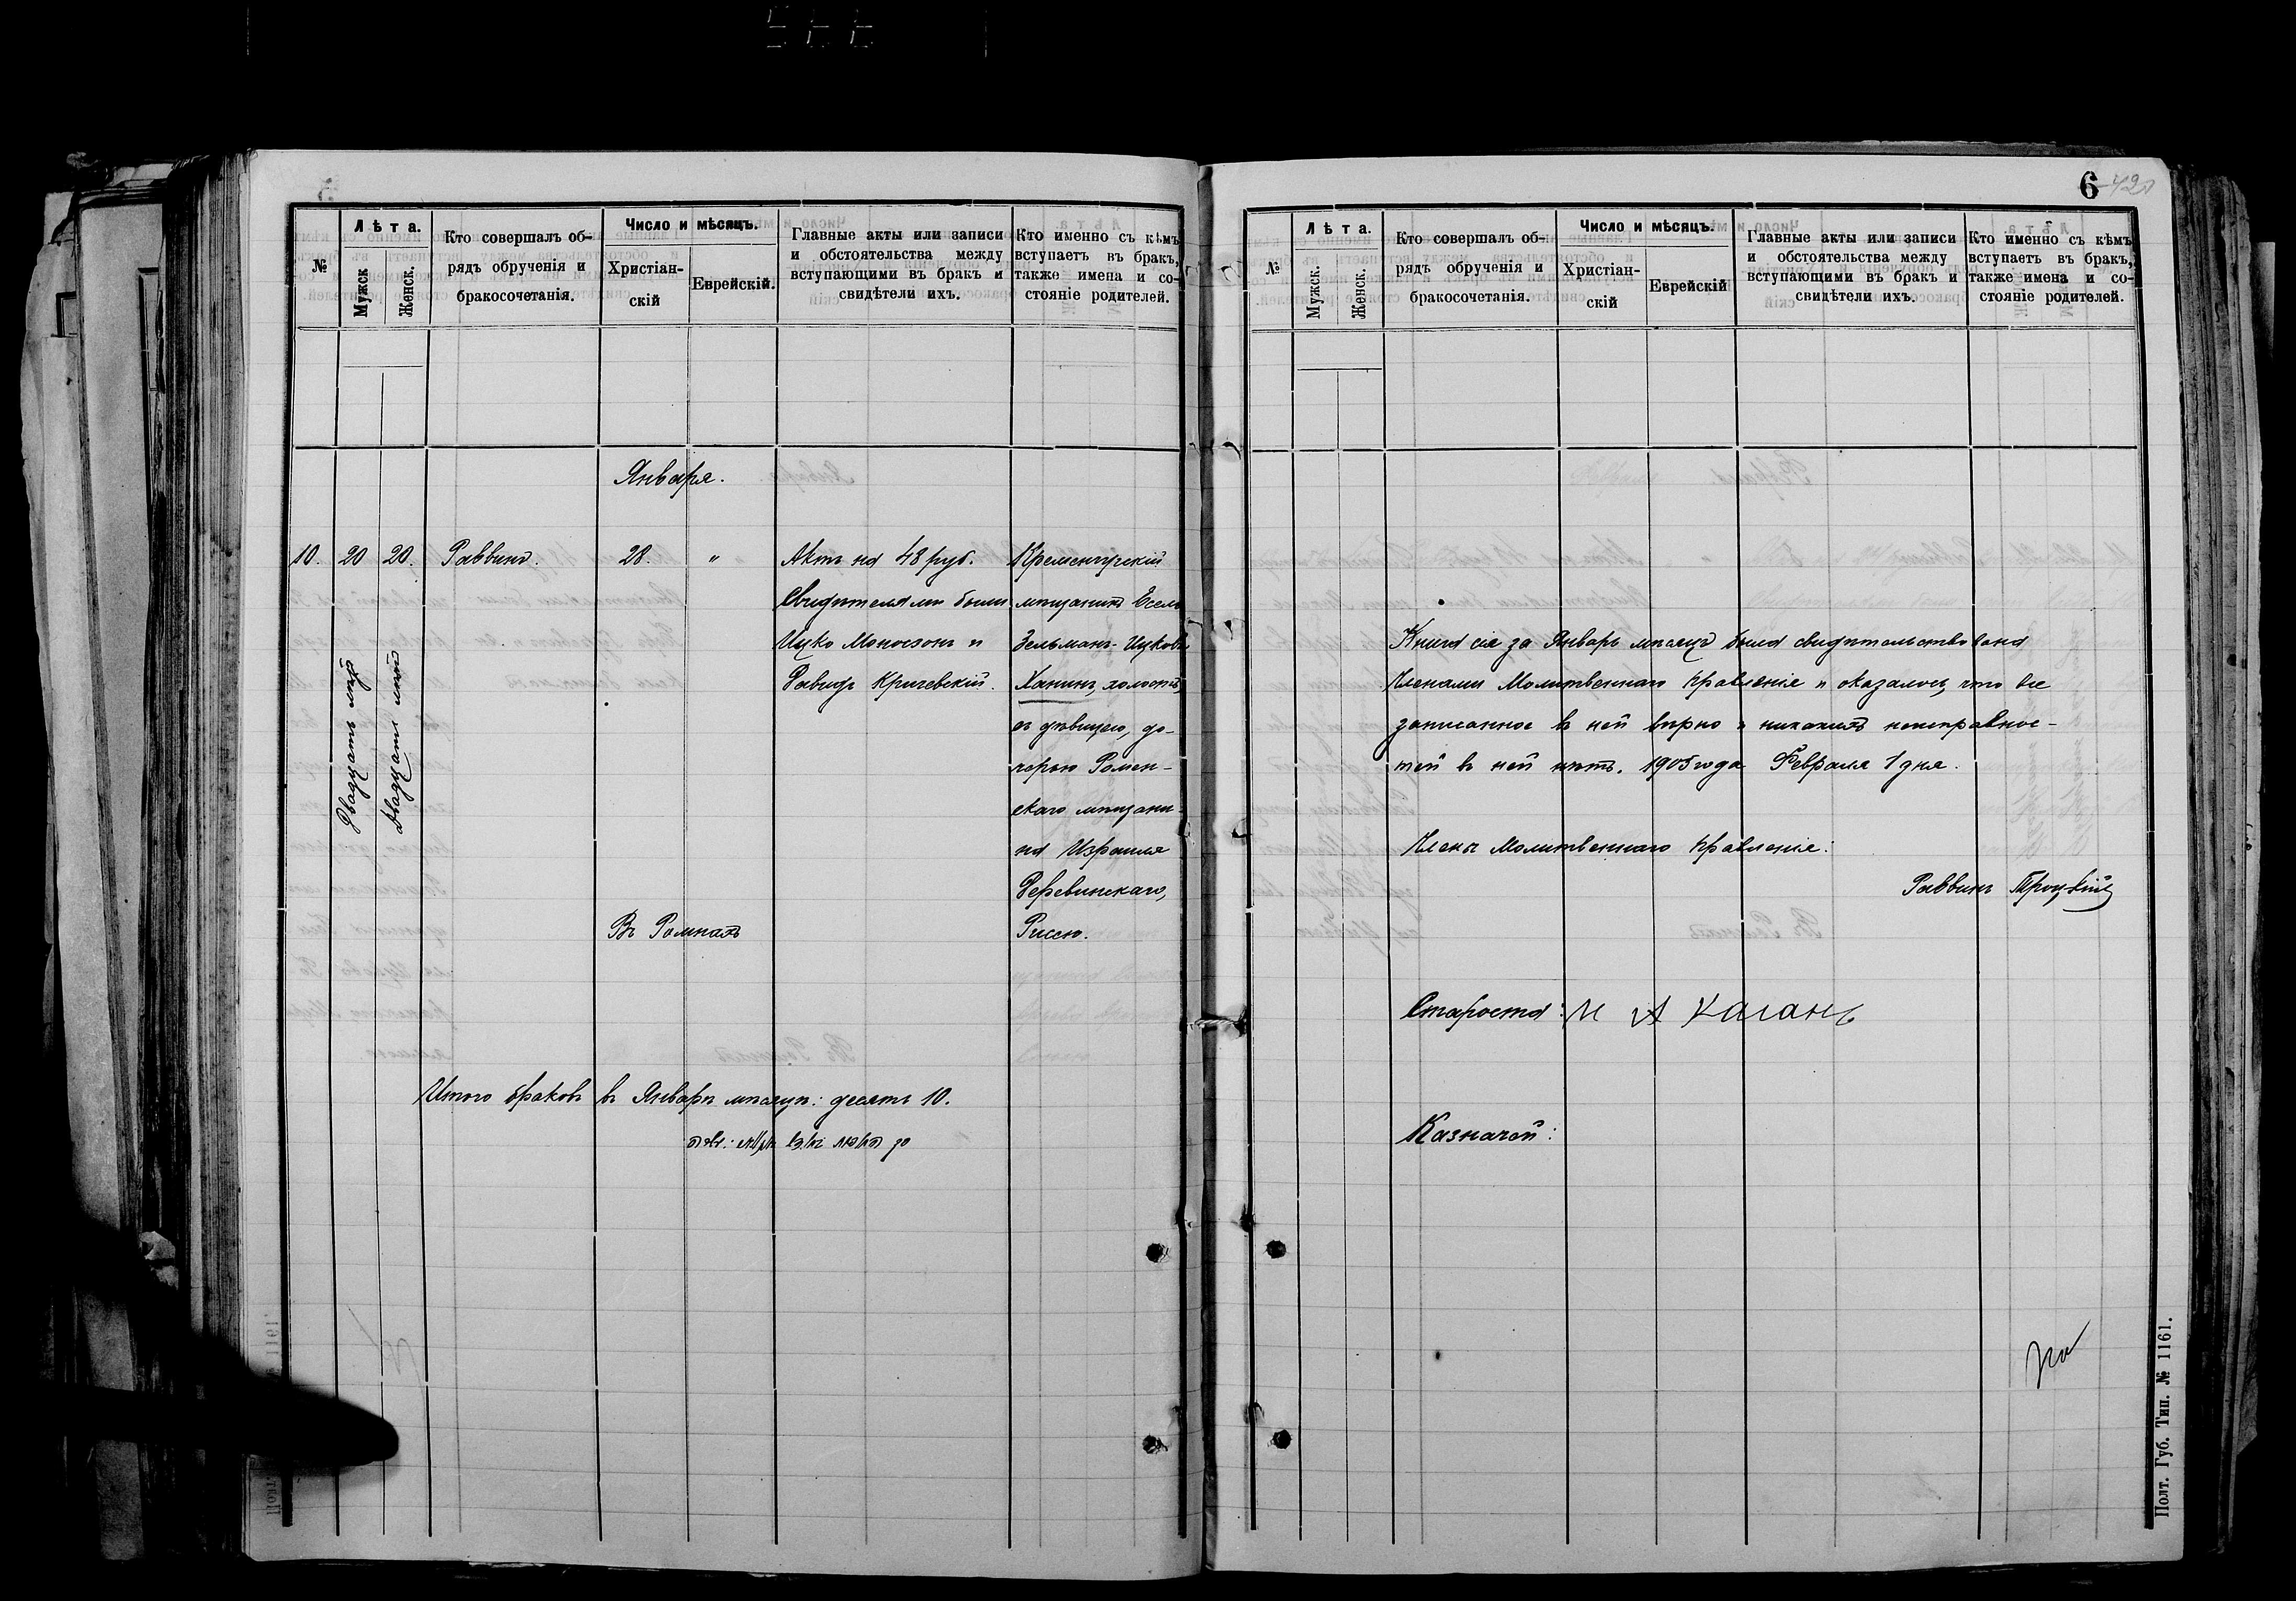 №
Лѣта.
Мужск
Женск.
Кто совершалъ об-
рядъ обрученія и
бракосочетанія.
Число и мѣсяцъ.
Христіан-
скій
Еврейскій.
Главные акты или записи
и обстоятельства между
вступающими въ бракъ и
свидѣтели ихъ.
Кто именно съ кѣмъ
вступаетъ въ бракъ,
также имена и со-
стояніе родителей.
Января.
10. 20 20. Раввинъ. 28. "
Двадцать лѣтъ
Двадцать лѣтъ
Актъ на 48 руб.
Свидѣтелями были
Ицко Моносзонъ и
Давидъ Кричевскій.
Кременчугскій
мѣщанинъ Есель
Зельманъ-Ицковъ
Ханинъ, холостъ
съ дѣвицею, до-
черью Ромен-
скаго мѣщани-
на Израиля
Деревинскаго,
Рисею.
Въ Ромнахъ
Итого браковъ въ Январѣ мѣсяцѣ: десять 10.
6
№
Лѣта.
Мужск.
Женск.
Кто совершалъ об-
рядъ обрученія и
бракосочетанія.
Число и мѣсяцъ.
Христіан-
скій
Еврейскій
Главные акты или записи
и обстоятельства между
вступающими въ бракъ и
свидѣтели ихъ.
Кто именно съ кѣмъ
вступаетъ въ бракъ,
также имена и со-
стояніе родителей.
Книга сія за Январь мѣсяцъ была свидѣтельствована
Членами Молитвеннаго Правленія и оказалось, что все
записанное въ ней вѣрно и никакихъ неисправнос-
тей въ ней нѣтъ. 1905 года Февраля 1 дня.
Члены Молитвеннаго Правленія:
Раввинъ Троцкій
Староста: М А Каганъ
Казначей:
Полт. Губ. Тип. № 1161.